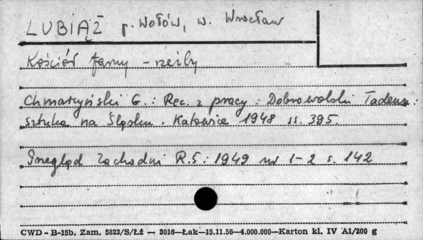 LUBIĄŻ p. Wołów, w. Wrocław
Kościół farny - rzeźby
Chmarzyński G.: Rec. z pracy: Dobrowolski Tadeusz:
sztuka na Śląsku. Katowice 1948 ss. 395.
Przegląd Zachodni R.5: 1949 nr 1-2 s. 142
CWD - B-15b. Zam. 5823/S/ŁŻ — 3016—Łak—15.11.56—4.000.000—Karton kl. IV A1/200 g